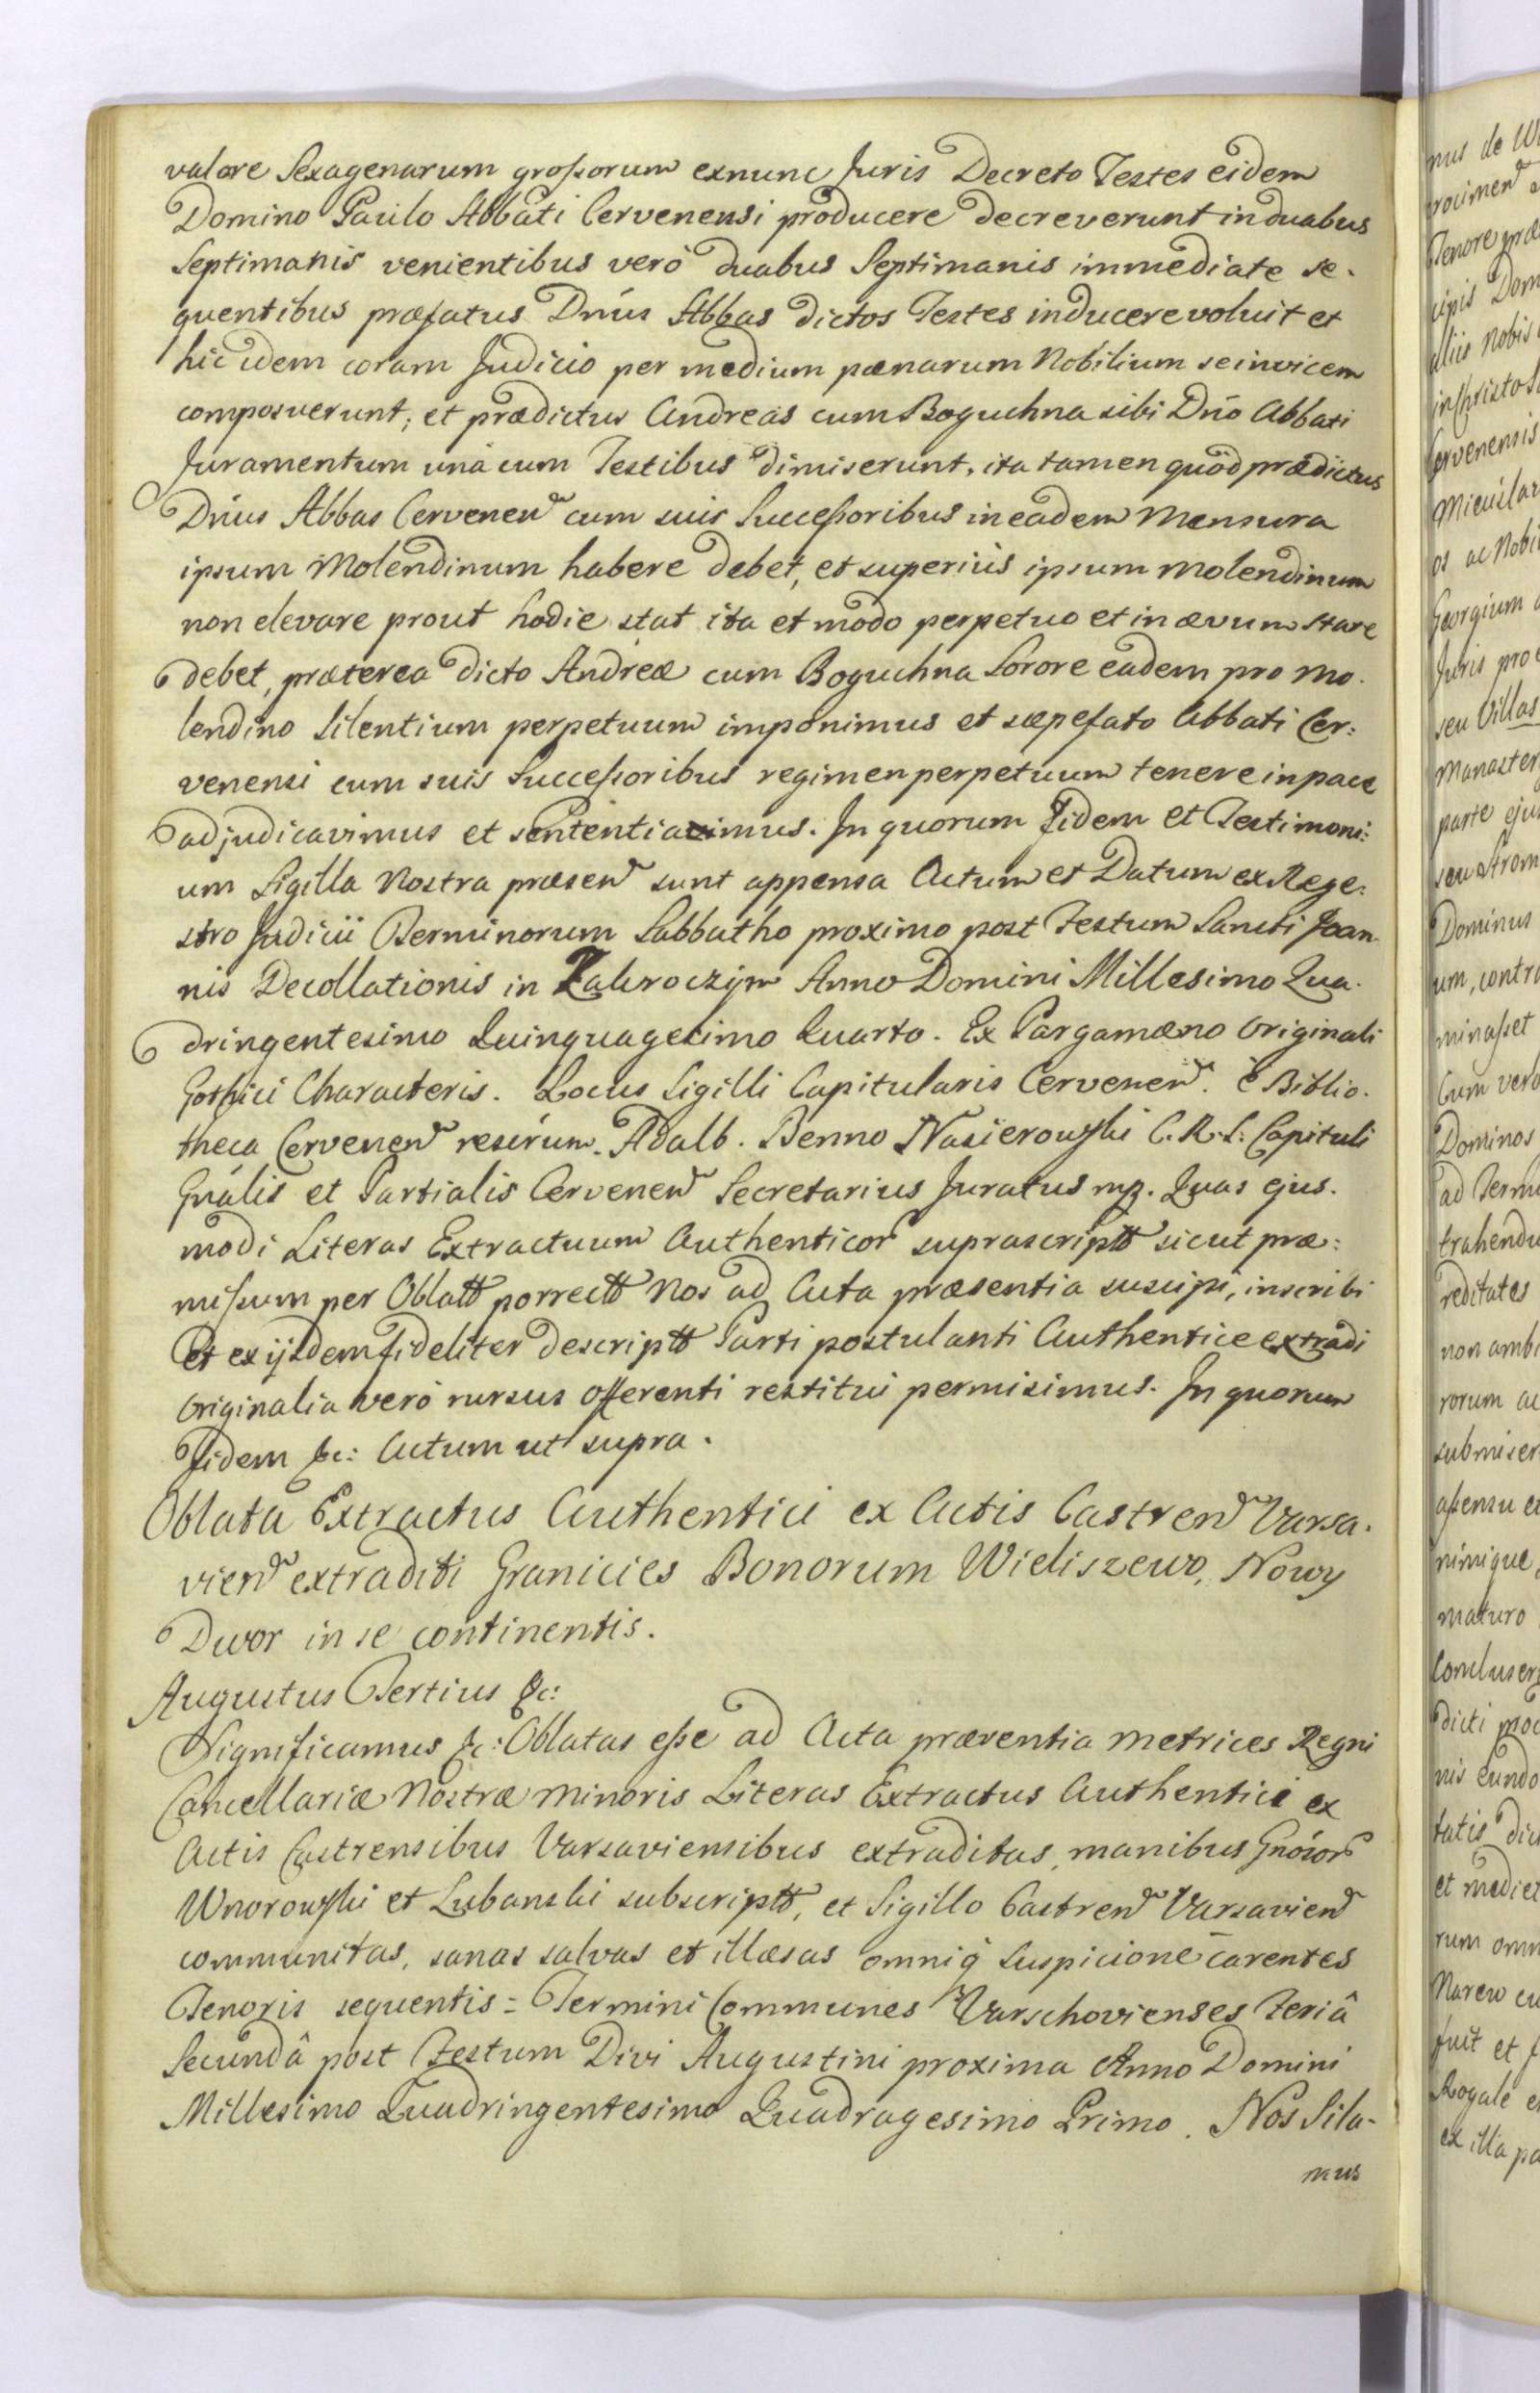 valore Sexagenarum grossorum exnunc Juris Decreto Testes eidem
Domino Paulo Abbati Cervenensi producere decreverunt in duabus
Septimanis venientibus verò duabus Septimanis immediate se-
quentibus præfatus Dnús Abbas dictos Testes inducere voluit et
hic idem coram Judicio per medium pænarum Nobilium se invicem
composuerunt, et prædictus Andreas cum Boguchna sibi Dnó Abbati
Juramentum unà cum Testibus dimiserunt, ita tamen quòd prædictus
Dnús Abbas Cervenen cum suis Successoribus in eadem Mensura
ipsum Molendinum habere debet, et superiùs ipsum molendinum
non elevare prout hodie stat ita et modo perpetuo et in ævum stare
debet, præterea dicto Andreæ cum Boguchna Sorore eadem pro mo-
lendino Silentium perpetuum imponimus et sæpefato Abbati Cer:
venensi cum suis Successoribus regimen perpetuum tenere in pace
adjudicavimus et sententiavimus. In quorum Fidem et Testimoni:
um Sigilla Nostra præsen sunt appensa Actum et Datum ex Rege:
stro Judicii Terminorum Sabbatho proximo post Festum Sancti Joan
nis Decollationis in Zakroczym Anno Domini Millesimo Qua-
dringentesimo Quinquagesimo Quarto. Ex Pargamæno Originali
Gothici Characteris. Locus Sigilli Capitularis Cervenen. è Biblio-
theca Cervenen Adalb. Benno Nasierowski C.R.L. Capituli
Gnális et Partialis Cervenen Secretarius Juratus mp. Quas ejus-
modi Literas Extractuum Authenticor suprascriptt sicut præ:
missum per Oblatt porrectt Nos ad Acta præsentia suscipi, inscribi
Et ex ijsdem fideliter descriptt Parti postulanti Authentice extradi
Originalia verò rursus Offerenti restitui permisimus. In quorum
Fidem &c: Actum ut supra.
Oblata Extractus Authentici ex Actis Castren Varsa-
vien extraditi Granicies Bonorum Wieliszewo, Nowy
Dwor in se continentis.
Augustus Tertius &c:
Significamus &c: Oblatas esse ad Acta præsentia Metrices Regni
Cancellariæ Nostræ Minoris Literas Extractus Authentici ex
Actis Castrensibus Varsaviensibus extraditas, manibus Gnósor
Wnorowski et Lubanski subscriptt, et Sigillo Castren Varsavien
communitas, sanas salvas et illæsas omniq suspicione carentes
Tenoris sequentis = Termini Communes Varschovienses Feriâ
Secundâ post Festum Divi Augustini proxima Anno Domini
Millesimo Quadringentesimo Quadragesimo Primo. Nos Sila-
mus